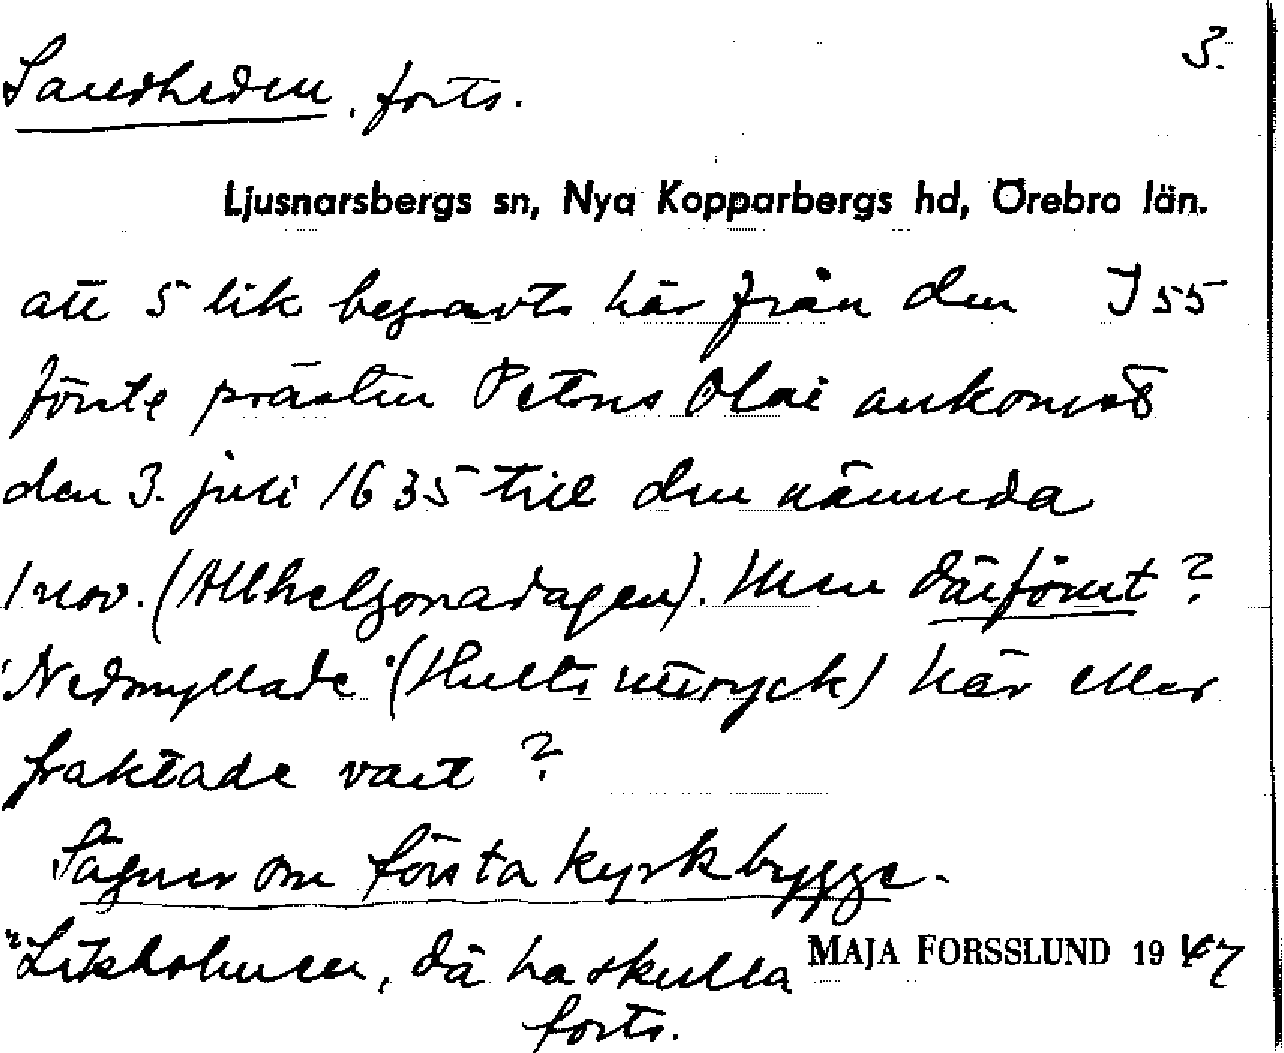 3.
Sandheden, forts.
Ljusnarsbergs sn, Nya Kopparbergs hd, Örebro län.
att 5 lik begravts här från den J 55
förste prästen Petrus Olai ankomst
den 3. juli 1635 till den nämnda
1 nov. (Allhelgonadagen). Men därförut?
"Nedmyllade" (Hults uttryck) här eller
fraktade vart?
Sägner om första kyrkbygge.
"Likholmen, dä ha skulla
MAJA FORSSLUND 1947
forts.